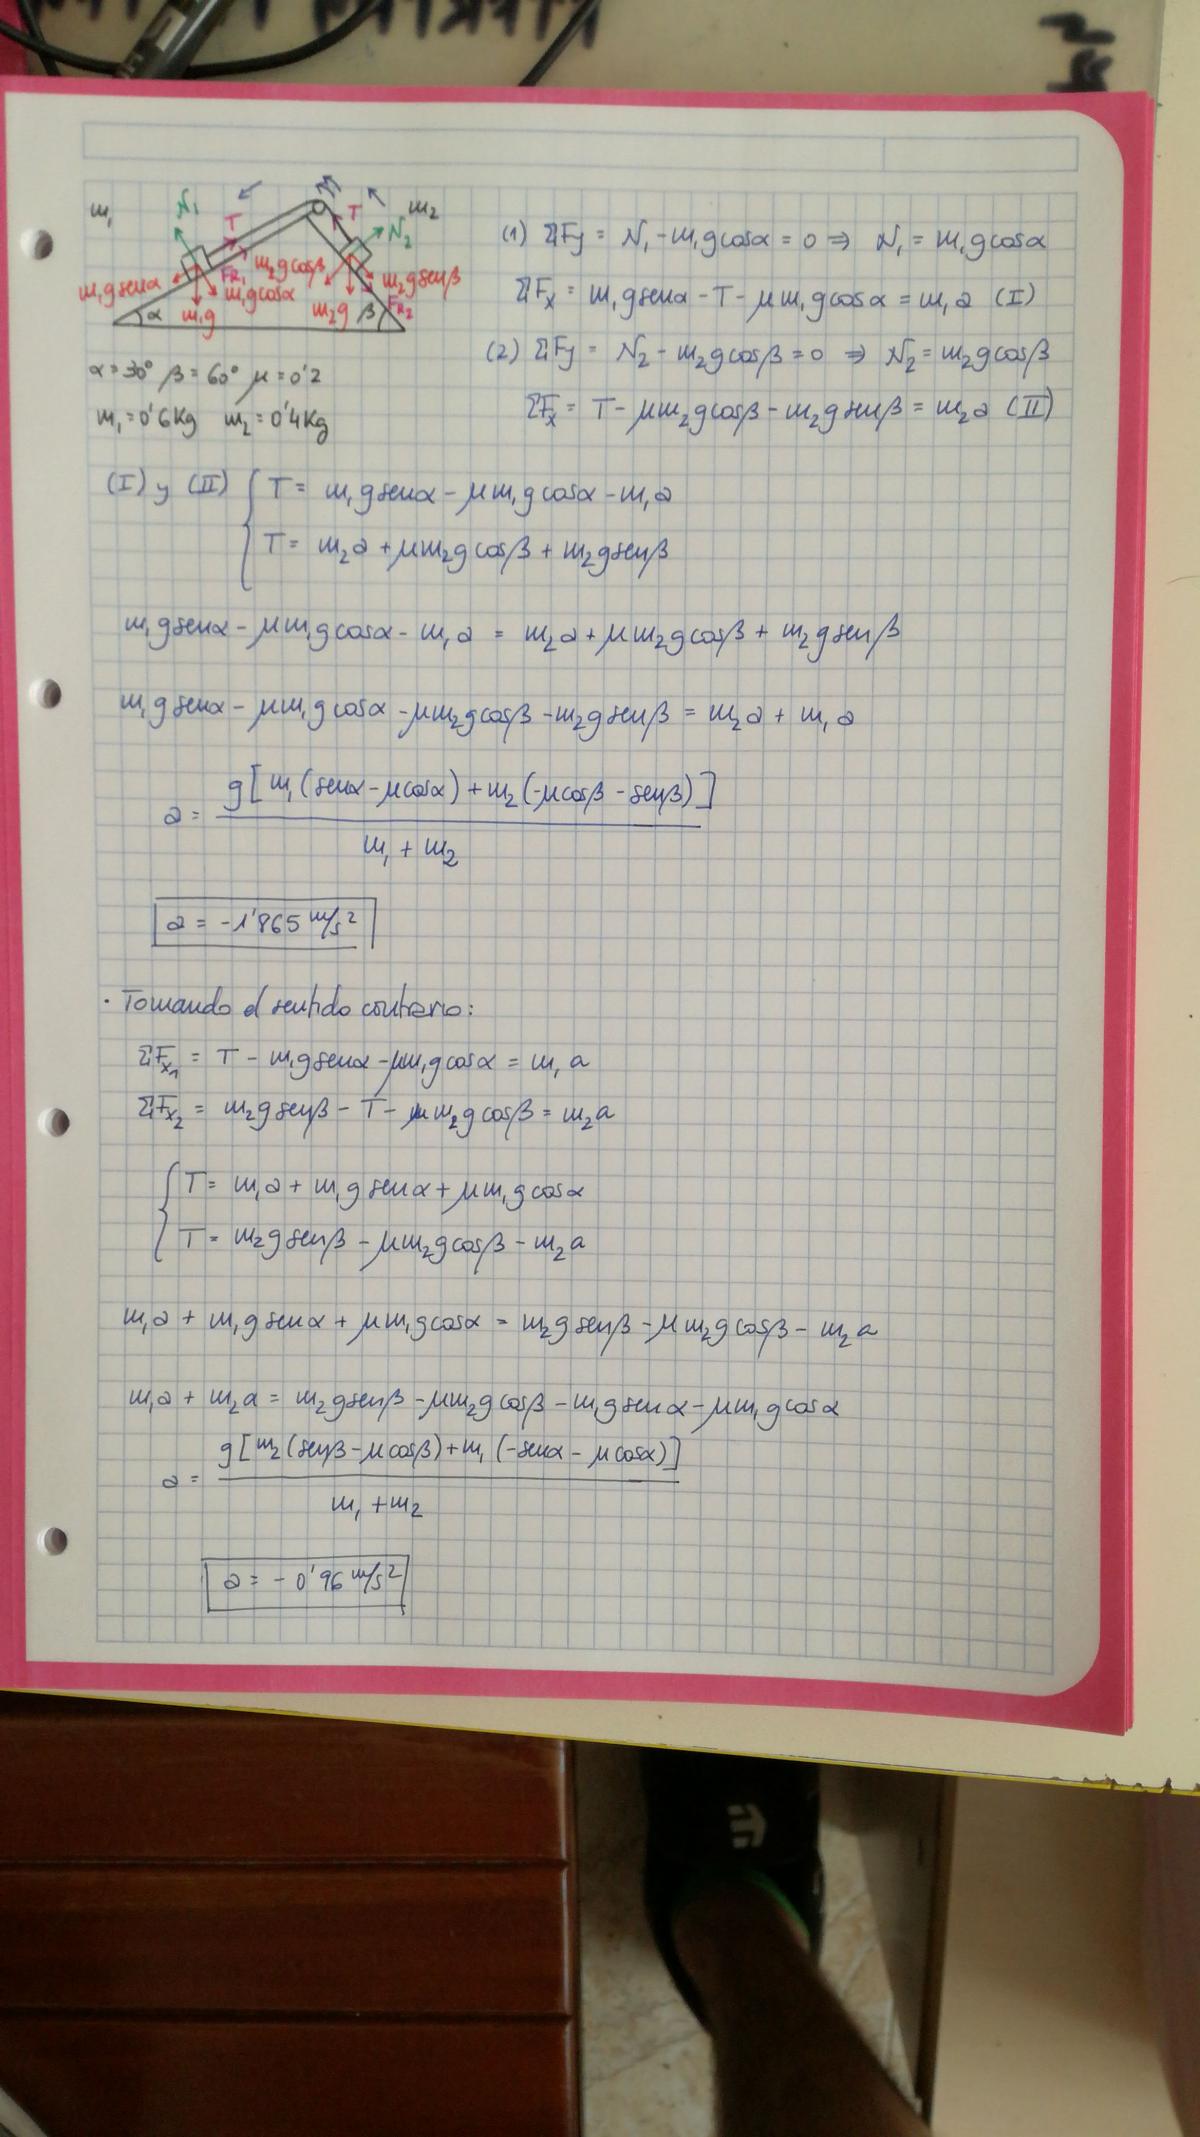 m₁ N₁ T T m₂ N₂
m₁g senα FR₁ m₂g cosβ m₂g senβ
m₁g cosα FR₂
α m₁g m₂g β
α = 30° β = 60° μ = 0'2
m₁ = 0'6 Kg m₂ = 0'4 Kg
(1) ΣFy = N₁ - m₁g cosα = 0 ⇒ N₁ = m₁g cosα
ΣFx = m₁g senα - T - μm₁g cosα = m₁a (I)
(2) ΣFy = N₂ - m₂g cosβ = 0 ⇒ N₂ = m₂g cosβ
ΣFx = T - μm₂g cosβ - m₂g senβ = m₂a (II)
(I) y (II) { T = m₁g senα - μm₁g cosα - m₁a
T = m₂a + μm₂g cosβ + m₂g senβ
m₁g senα - μm₁g cosα - m₁a = m₂a + μm₂g cosβ + m₂g senβ
m₁g senα - μm₁g cosα - μm₂g cosβ - m₂g senβ = m₂a + m₁a
g[m₁(senα - μcosα) + m₂(-μcosβ - senβ)]
a =
m₁ + m₂
a = -1'865 m/s²
· Tomando el sentido contrario:
ΣFx₁ = T - m₁g senα - μm₁g cosα = m₁a
ΣFx₂ = m₂g senβ - T - μm₂g cosβ = m₂a
{ T = m₁a + m₁g senα + μm₁g cosα
T = m₂g senβ - μm₂g cosβ - m₂a
m₁a + m₁g senα + μm₁g cosα = m₂g senβ - μm₂g cosβ - m₂a
m₁a + m₂a = m₂g senβ - μm₂g cosβ - m₁g senα - μm₁g cosα
g[m₂(senβ - μcosβ) + m₁(-senα - μcosα)]
a =
m₁ + m₂
a = -0'96 m/s²